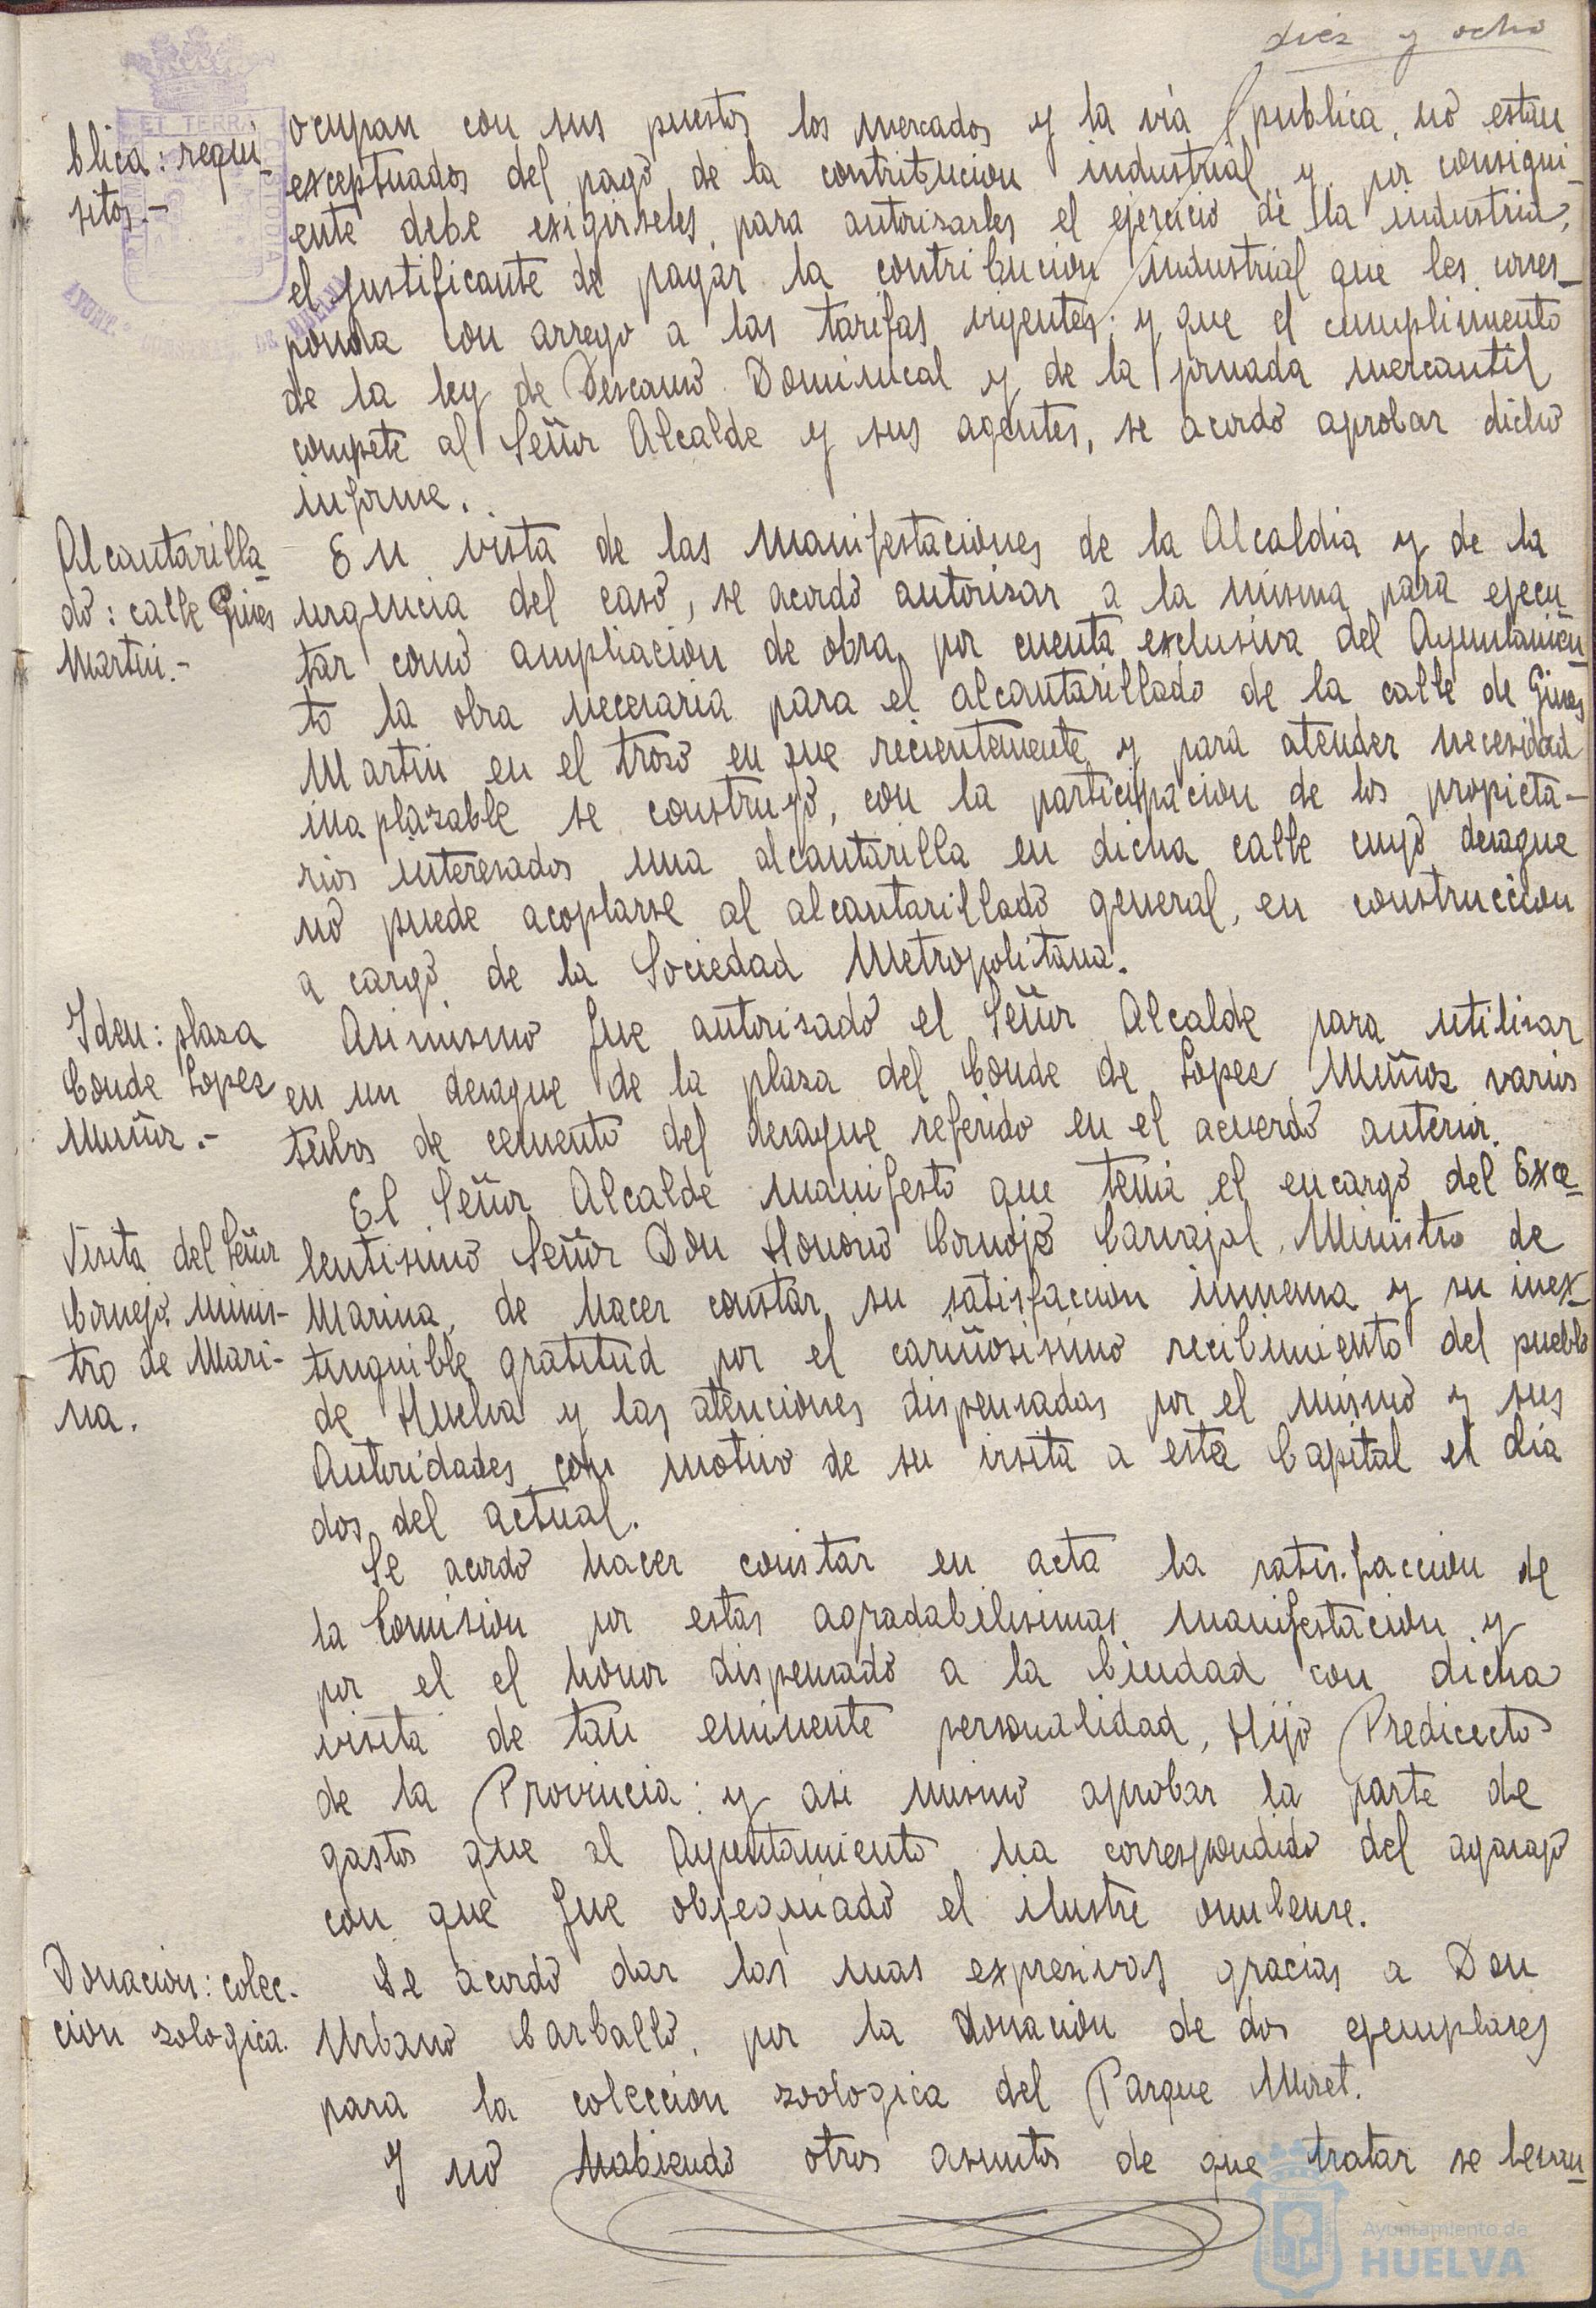 diez y ocho
blica: requi-
sitos.-
ocupan con sus puestos los mercados y la via publica, no estan
exceptuados del pago de la contribucion industrial y por consigui-
ente debe exigirseles, para autorisarles el ejercicio de la industria,
el justificante de pagar la contribucion industrial que les corres-
ponda con arreyo a las tarifas vigentes; y que el cumplimiento
de la ley de Descanso Dominical y de la jornada mercantil
compete al Señor Alcalde y sus agentes, se acordó aprobar dicho
informe.
Alcantarilla-
do: calle Gines
Martin.-
En vista de las manifestaciones de la Alcaldia y de la
urgencia del caso, se acordó autorisar a la misma para ejecu-
tar como ampliacion de obra, por cuenta exclusiva del Ayuntamien-
to la obra necesaria para el alcantarillado de la calle de Gines
Martin en el troso en que recientemente y para atender necesidad
inaplasable se construyó, con la participacion de los propieta-
rios interesados una alcantarilla en dicha calle cuyo desague
no puede acoplarse al alcantarillado general, en construccion
a cargo de la Sociedad Metropolitana.
Iden: plasa
Conde Lopez
Muñoz.-
Asimismo fue autorisado el Señor Alcalde para utilisar
en un desague de la plasa del Conde de Lopez Muñoz varios
tubos de cemento del desague referido en el acuerdo anterior.
Visita del Señor
Cornejo, Minis-
tro de Mari-
na.
El Señor Alcalde manifestó que tenia el encargo del Exce-
lentisimo Señor Don Honorio Cornejo Carvajal, Ministro de
Marina, de hacer constar su satisfaccion inmensa y su inex-
tinguible gratitud por el cariñosisimo recibimiento del pueblo
de Huelva y las atenciones dispensadas por el mismo y sus
Autoridades con motivo de su visita a esta Capital el dia
dos del actual.
Se acordó hacer constar en acta la satisfaccion de
la Comision por estas agradabilisimas manifestacion y
por el el honor dispensado a la Ciudad con dicha
visita de tan eminente personalidad, Hijo Predilecto
de la Provincia: y asi mismo aprobar la parte de
gastos que al Ayuntamiento ha correspondido del agasajo
con que fue obsequiado el ilustre onubense.
Donacion: colec-
cion zologica.
Se acordó dar las mas expresivas gracias a Don
Urbano Carballo, por la donacion de dos ejemplares
para la coleccion zoologica del Parque Moret.
Y no habiendo otros asuntos de que tratar se levan-
Ayuntamiento de
HUELVA